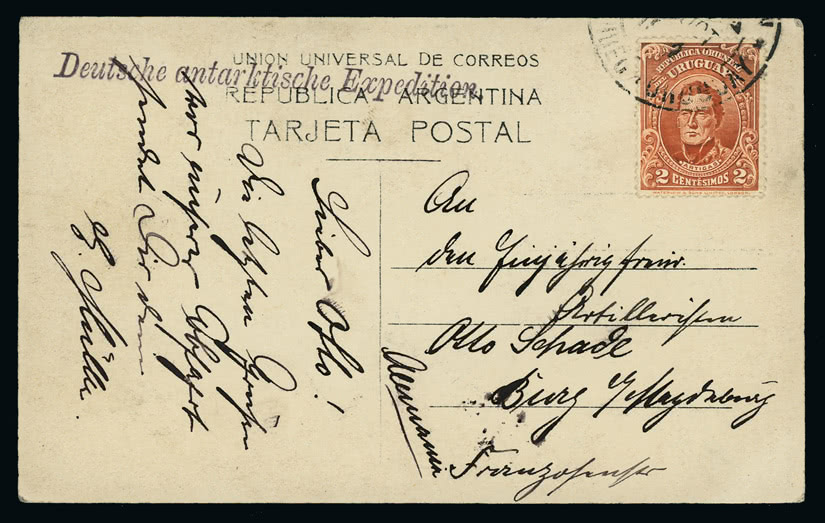 Deutsche antarktische Expedition.
UNION UNIVERSAL DE CORREOS
REPUBLICA ARGENTINA
TARJETA POSTAL
REPUBLICA ORIENTAL
DEL URUGUAY
ARTIGAS
2 CENTÉSIMOS 2
Lieber Otto!
Die letzten Grüße
vor unserer Abfahrt
sendet Dir Dein
Müller.
An
den Einjährig freiw.
Artilleristen
Otto Schade
Burg b/Magdeburg
Alemania
Franzosenstr